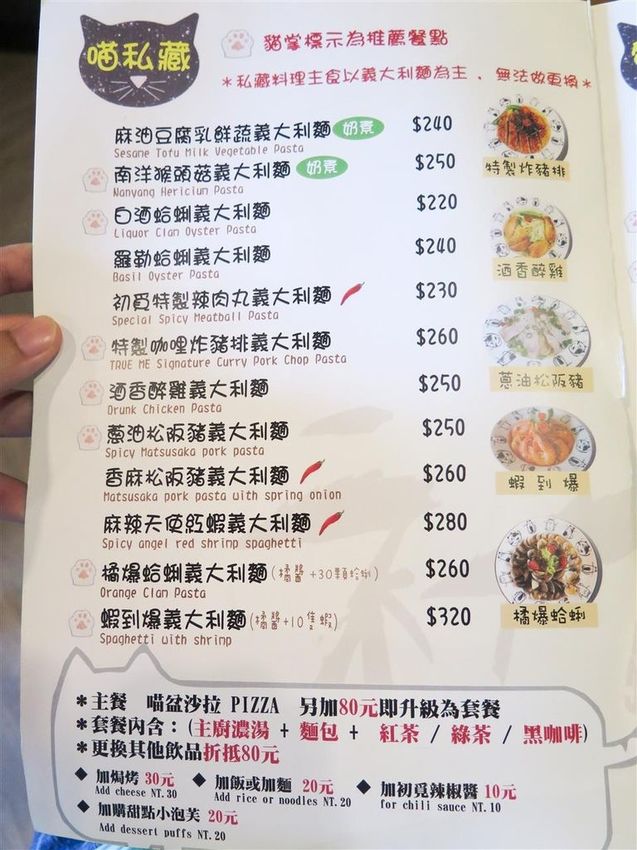 喵私藏
貓掌標示為推薦餐點
*私藏料理主食以義大利麵為主，無法做更換*
麻油豆腐乳鮮蔬義大利麵 奶素 $240
Sesame Tofu Milk Vegetable Pasta
南洋猴頭菇義大利麵 奶素 $250
Nanyang Hericium Pasta
白酒蛤蜊義大利麵 $220
Liquor Clan Oyster Pasta
羅勒蛤蜊義大利麵 $240
Basil Oyster Pasta
初覓特製辣肉丸義大利麵 $230
Special Spicy Meatball Pasta
特製咖哩炸豬排義大利麵 $260
TRUE ME Signature Curry Pork Chop Pasta
酒香醉雞義大利麵 $250
Drunk Chicken Pasta
蔥油松阪豬義大利麵 $250
Spicy Matsusaka pork pasta
香麻松阪豬義大利麵 $260
Matsusaka pork pasta with spring onion
麻辣天使紅蝦義大利麵 $280
Spicy angel red shrimp spaghetti
橘爆蛤蜊義大利麵(橘醬+30顆蛤蜊) $260
Orange Clan Pasta
蝦到爆義大利麵(橘醬+10隻蝦) $320
Spaghetti with shrimp
特製炸豬排
酒香醉雞
蔥油松阪豬
蝦到爆
橘爆蛤蜊
*主餐 喵盆沙拉 PIZZA 另加80元即升級為套餐
*套餐內含：(主廚濃湯 + 麵包 + 紅茶 / 綠茶 / 黑咖啡)
*更換其他飲品折抵80元
◆ 加焗烤 30元 ◆ 加飯或加麵 20元 ◆ 加初覓辣椒醬 10元
Add cheese NT.30 Add rice or noodles NT.20 for chili sauce NT.10
◆ 加購甜點小泡芙 20元
Add dessert puffs NT.20